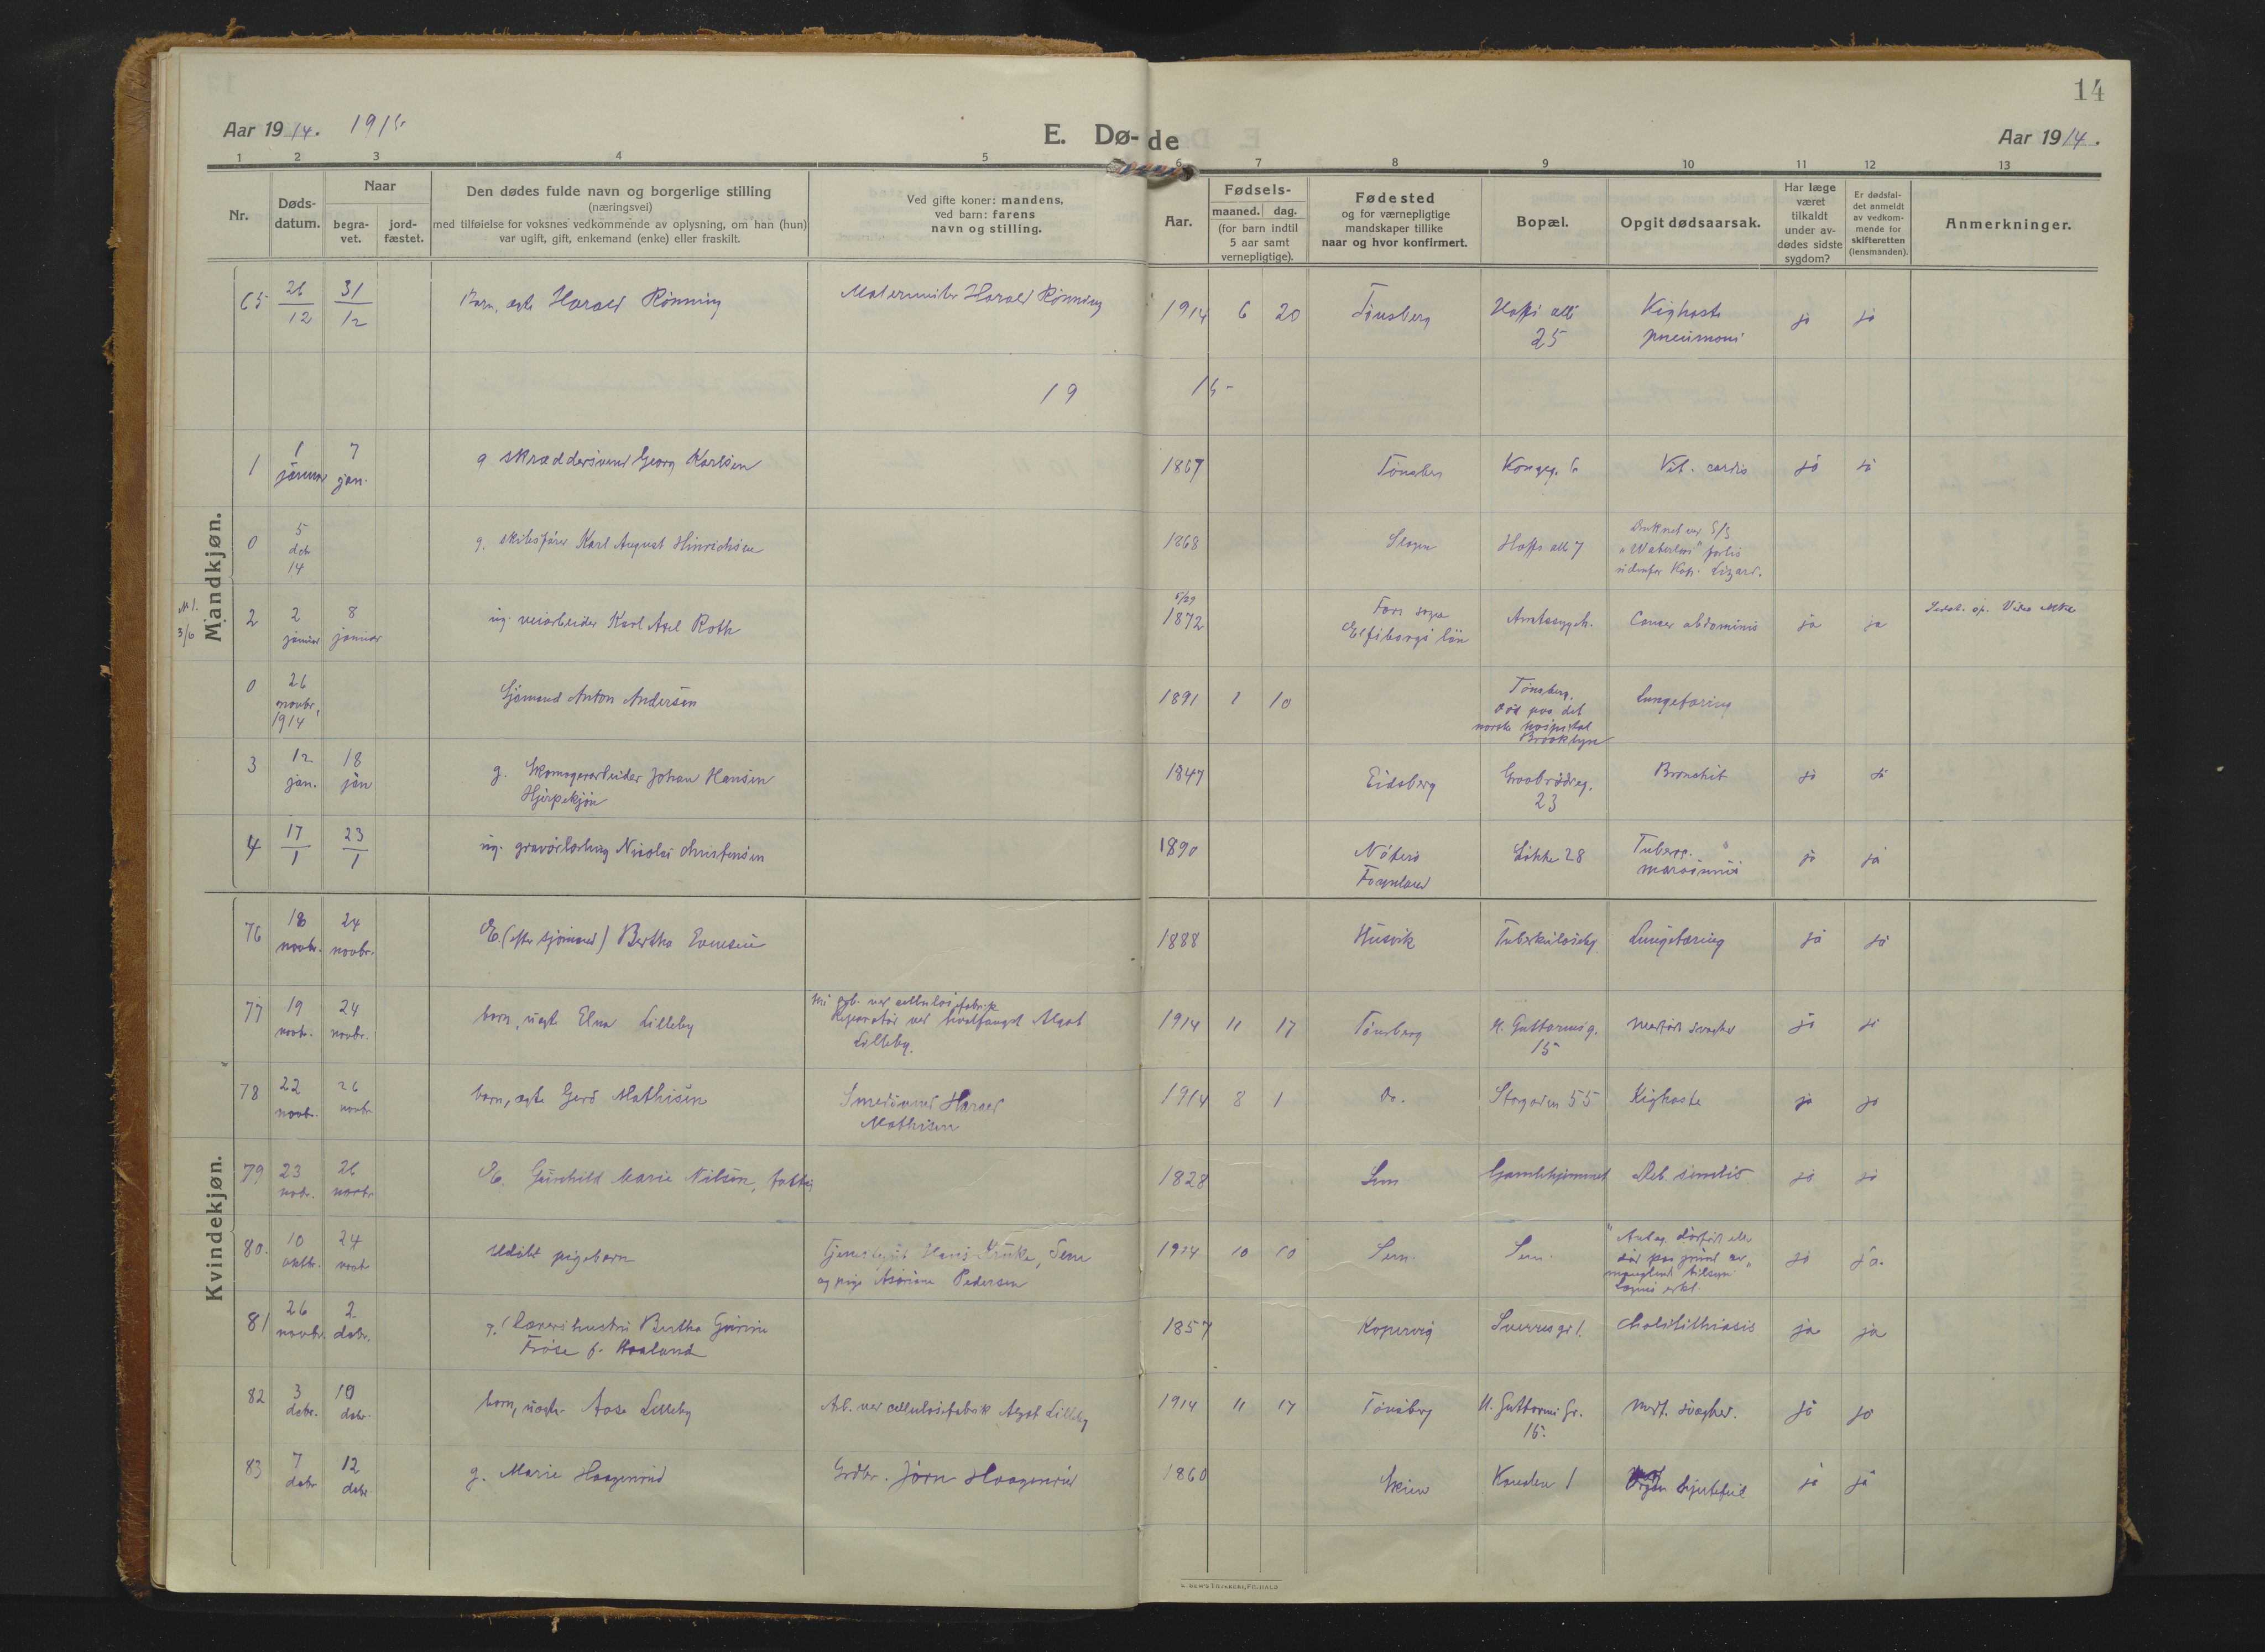 14
Aar 1914. 1915
E. Dø- de
Aar 1914.
1 2 3 4 5 6 7 8 9 10 11 12 13
Nr.
Døds-
datum.
Naar
begra-
vet.
jord-
fæstet.
Den dødes fulde navn og borgerlige stilling
(næringsvei)
med tilføielse for voksnes vedkommende av oplysning, om han (hun)
var ugift, gift, enkemand (enke) eller fraskilt.
Ved gifte koner: mandens,
ved barn: farens
navn og stilling.
Aar.
Fødsels-
maaned. dag.
(for barn indtil
5 aar samt
vernepligtige).
Fødested
og for værnepligtige
mandskaper tillike
naar og hvor konfirmert.
Bopæl.
Opgit dødsaarsak.
Har læge
været
tilkaldt
under av-
dødes sidste
sygdom?
Er dødsfal-
det anmeldt
av vedkom-
mende for
skifteretten
(lensmanden).
Anmerkninger.
Mandkjøn.
65 26/12 31/12 Barn, ægte Harald Rønning Harald Rønning 1914 6 20 Tønsberg 25 Kighoste
pneumoni ja ja
19 15
1 1 januar 7 jan. g skræddersvend Georg Karlsen 1867 Tønsberg Kongeg. Vit. cordis ja ja
0 5 14 g. skibsfører Karl August Hinrichsen 1868 Slagen 7 Druknet ved S/S
"Waterloo" forlis
Kap. Lizard.
N 1.
3/6
2 2 januar 8 januar ug. veiarbeider Karl Axel Roth 5/29
1872
Elfsborgs län Amtssygeh. Cancer abdominis ja ja
0 26
novbr.
1914 Sjømand Anton Andersen 1891 1 10 Tønsberg.
Død paa det
norske hospital
Brooklyn Lungetæring
3 12 jan. 18 jan g. Skomagerarbeider Johan Hansen
1847 Eidsberg 23 Bronchit ja ja
4 17/1 23/1 ug. gravørlærling Nicolai Christensen 1890 Nøterø
Løkke 28 ja ja
Kvindekjøn.
76 18 novbr. 24 novbr. E. (efter sjømand) Bertha Evensen 1888 Husvik Lungetæring ja ja
77 19 novbr. 24 novbr. barn, uægte Elna Lilleby arb. ved cellulosefabrik
Reparatør ved hvalfangst Algot
Lilleby. 1914 11 17 Tønsberg N. Guttormsg.
15 medfødt svaghed ja ja
78 22 novbr. 26 novbr barn, ægte Gerd Mathisen Smedsvend Harald
Mathisen 1914 8 1 Do. Storgaden 55 Kighoste ja ja
79 23 novbr. 26 novbr E. Gunhild Marie Nilsen, fattig 1828 Sem Gamlehjemmet Deb. senilis ja ja
80. 10 oktbr. 24 novbr udøbt pigebarn Tjenestegut Hans Kruke, Sem
og pige Pedersen 1914 10 10 Sem. Sem. "Antag. dødfødt eller
død paa grund av
manglende tilsyn"
Lægens erkl. ja ja.
81 26 novbr. 2 debr. g. Lærers hustru Bertha
f. Haaland 1857 Kopervig Sverresg. 1. Cholelithiasis ja ja
82 3 debr. 10 debr barn, uægte Aase Lilleby Arb. ved cellulosefabrik Algot Lilleby 1914 11 17 Tønsberg N. Guttorms Gr.
15. Medf. svaghed. ja ja
83 7 debr 12 debr g. Marie Haagensrud Jørn Haagensrud 1860 Skien Kanalen 1 hjertefeil ja ja